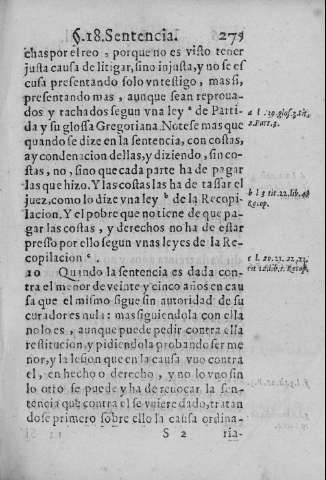 §.18.Sentencia. 279
chas por el reo, porque no es visto tener
justa causa de litigar, sino injusta, y no se es
cusa presentando solo vn testigo, mas si,
presentando mas, aunque sean reproua-
dos y tachados segun vna ley ª de Parti-
da y su glossa Gregoriana. Notese mas que
quando se dize en la sentencia, con costas,
ay condenacion dellas, y diziendo, sin co-
stas, no, sino que cada parte ha de pagar
las que hizo. Y las costas las ha de tassar el
juez, como lo dize vna ley ᵇ de la Recopi-
lacion. Y el pobre que no tiene de que pa-
gar las costas, y derechos no ha de estar
presso por ello segun vnas leyes de la Re-
copilacion ᶜ.
20 Quando la sentencia es dada con-
tra el menor de veinte y cinco años en cau
sa que el mismo sigue sin autoridad de su
curador es nula: mas siguiendola con ella
no lo es, aunque puede pedir contra ella
restitucion, y pidiendola probando ser me
nor, y la lesion que en la causa vuo contra
el, en hecho o derecho, y no lo vno sin
lo otro se puede y ha de reuocar la sen-
tencia que contra el se vuiere dado, tratan
dose primero sobre ello la causa ordina-
S 2 ria-
a l. 39. glos. 3. tit.
2. Part. 3.
b l. 3 tit. 22. lib. 4
Recop.
c l. 20. 21. 22. 23.
tit. 12. lib. 1. Recop.